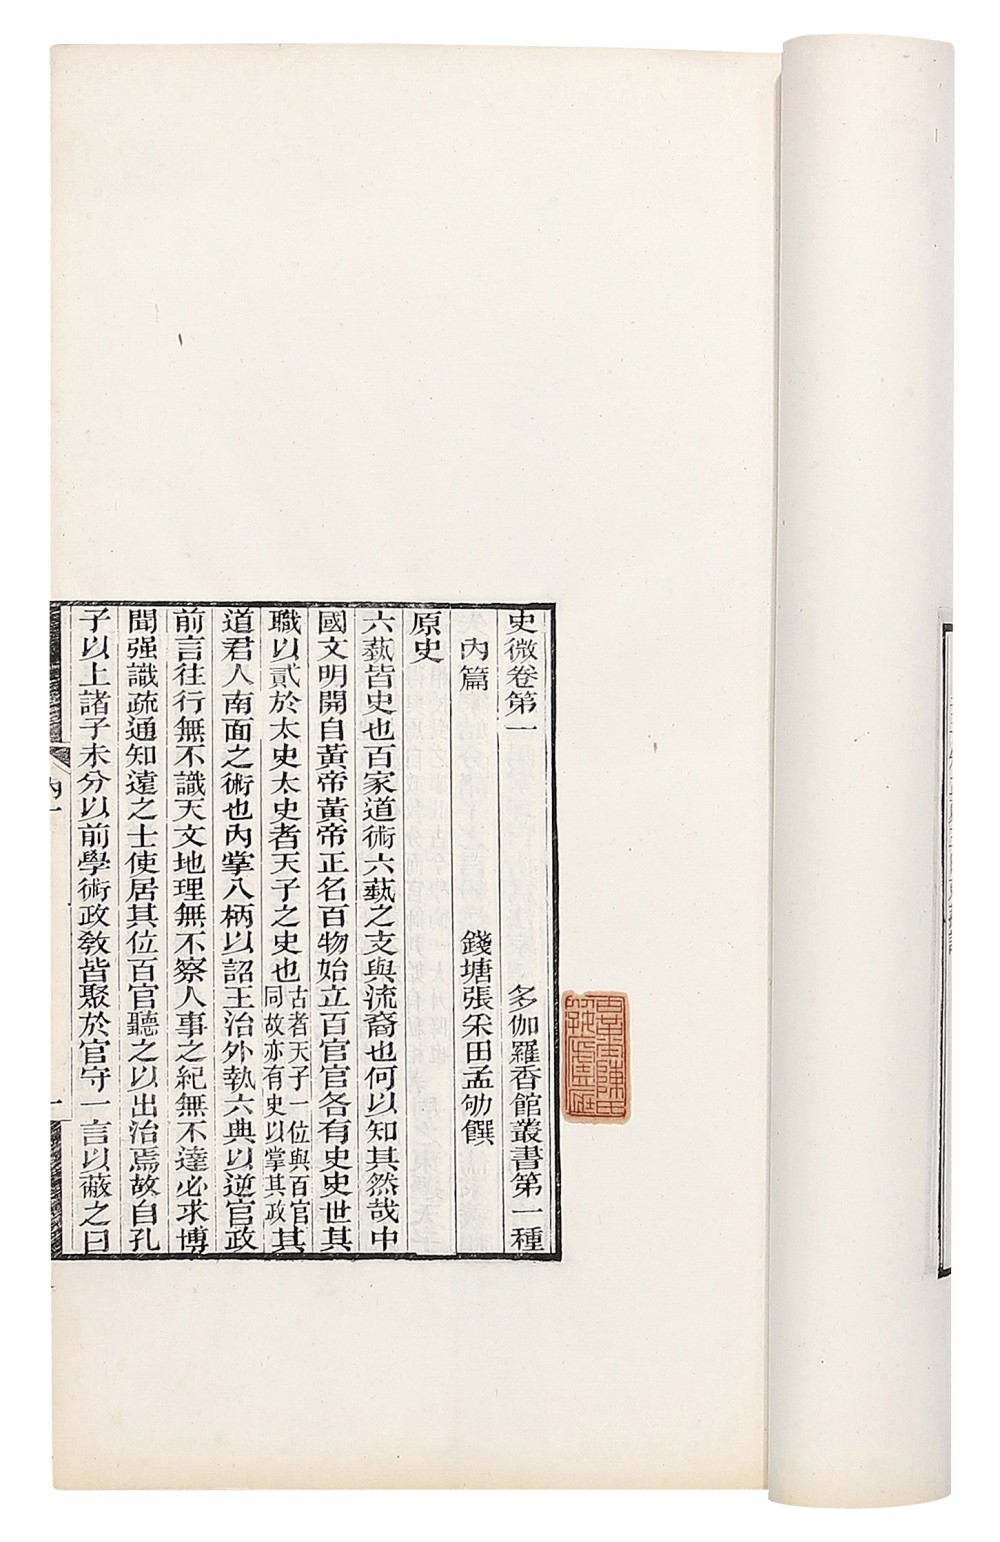 史微卷第一　多伽羅香館叢書第一種
內篇　錢塘張采田孟劬饌
原史
六蓺皆史也百家道術六蓺之支與流裔也何以知其然哉中
國文明開自黃帝黃帝正名百物始立百官官各有史史世其
職以貳於太史太史者天子之史也古者天子一位與百官同故亦有史以掌其政其
道君人南面之術也內掌八柄以詔王治外執六典以逆官政
前言往行無不識天文地理無不察人事之紀無不達必求博
聞强識疏通知遠之士使居其位百官聽之以出治焉故自孔
子以上諸子未分以前學術政敎皆聚於官守一言以蔽之曰
內一
一